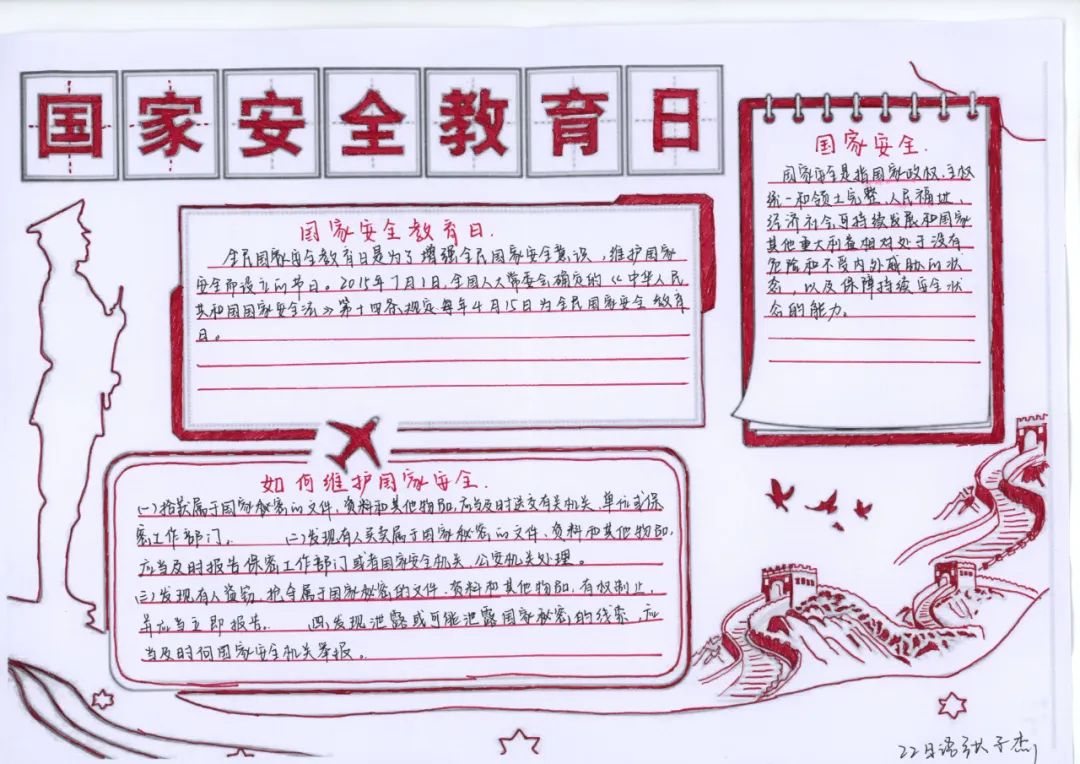 国家安全教育日
国家安全教育日.
全民国家安全教育日是为了增强全民国家安全意识，维护国家
安全而设立的节日。2015年7月1日,全国人大常委会确定的《中华人民
共和国国家安全法》第十四条规定每年4月15日为全民国家安全教育
日。
国家安全.
国家安全是指国家政权、主权
统一和领土完整、人民福祉、
经济社会可持续发展和国家
其他重大利益相对处于没有
危险和不受内外威胁的状
态，以及保障持续安全状
态的能力。
如何维护国家安全.
(一)拾获属于国家秘密的文件、资料和其他物品,应当及时送交有关机关、单位或保
密工作部门。 (二)发现有人买卖属于国家秘密的文件、资料和其他物品,
应当及时报告保密工作部门或者国家安全机关、公安机关处理。
(三)发现有人盗窃、抢夺属于国家秘密的文件、资料和其他物品,有权制止,
并应当立即报告. (四)发现泄露或可能泄露国家秘密的线索,应
当及时向国家安全机关举报。
22日语 张子杰